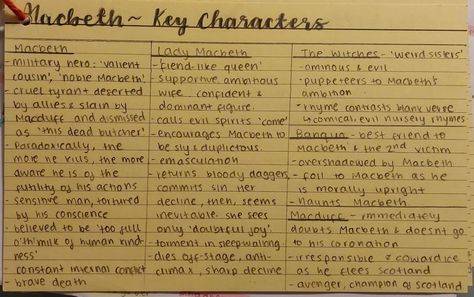 Macbeth ~ Key Characters
Macbeth
- military hero: 'valient
cousin', 'noble Macbeth'
- cruel tyrant deserted
by allies & slain by
Macduff and dismissed
as 'this dead butcher'
- Paradoxically, the
more he kills, the more
aware he is of the
futility of his actions
- sensitive man, tortured
by his conscience
- believed to be 'too full
o'th'milk of human kind-
ness'
- constant internal conflict
- brave death
Lady Macbeth
- 'fiend-like queen'
- supportive, ambitous
wife. confident &
dominant figure.
- calls evil spirits 'come'
- encourages Macbeth to
be sly & duplicitous.
- emasculation
- returns bloody daggers,
commits sin. Her
decline, then, seems
inevitable. she sees
only 'doubtful joy'
- torment in sleepwalking
- dies off-stage, anti-
climax, sharp decline
The Witches - 'weird sisters'
- ominous & evil
- puppeteers to Macbeth's
ambition.
- rhyme contrasts blank verse
↳ comical, evil nursery rhymes
Banquo - best friend to
Macbeth & the 2nd victim
- overshadowed by Macbeth
- foil to Macbeth as he
is morally upright
- haunts Macbeth
Macduff - immediately
doubts Macbeth & doesnt go
to his coronation
- irresponsible & cowardice
as he flees Scotland
- avenger, champion of scotland